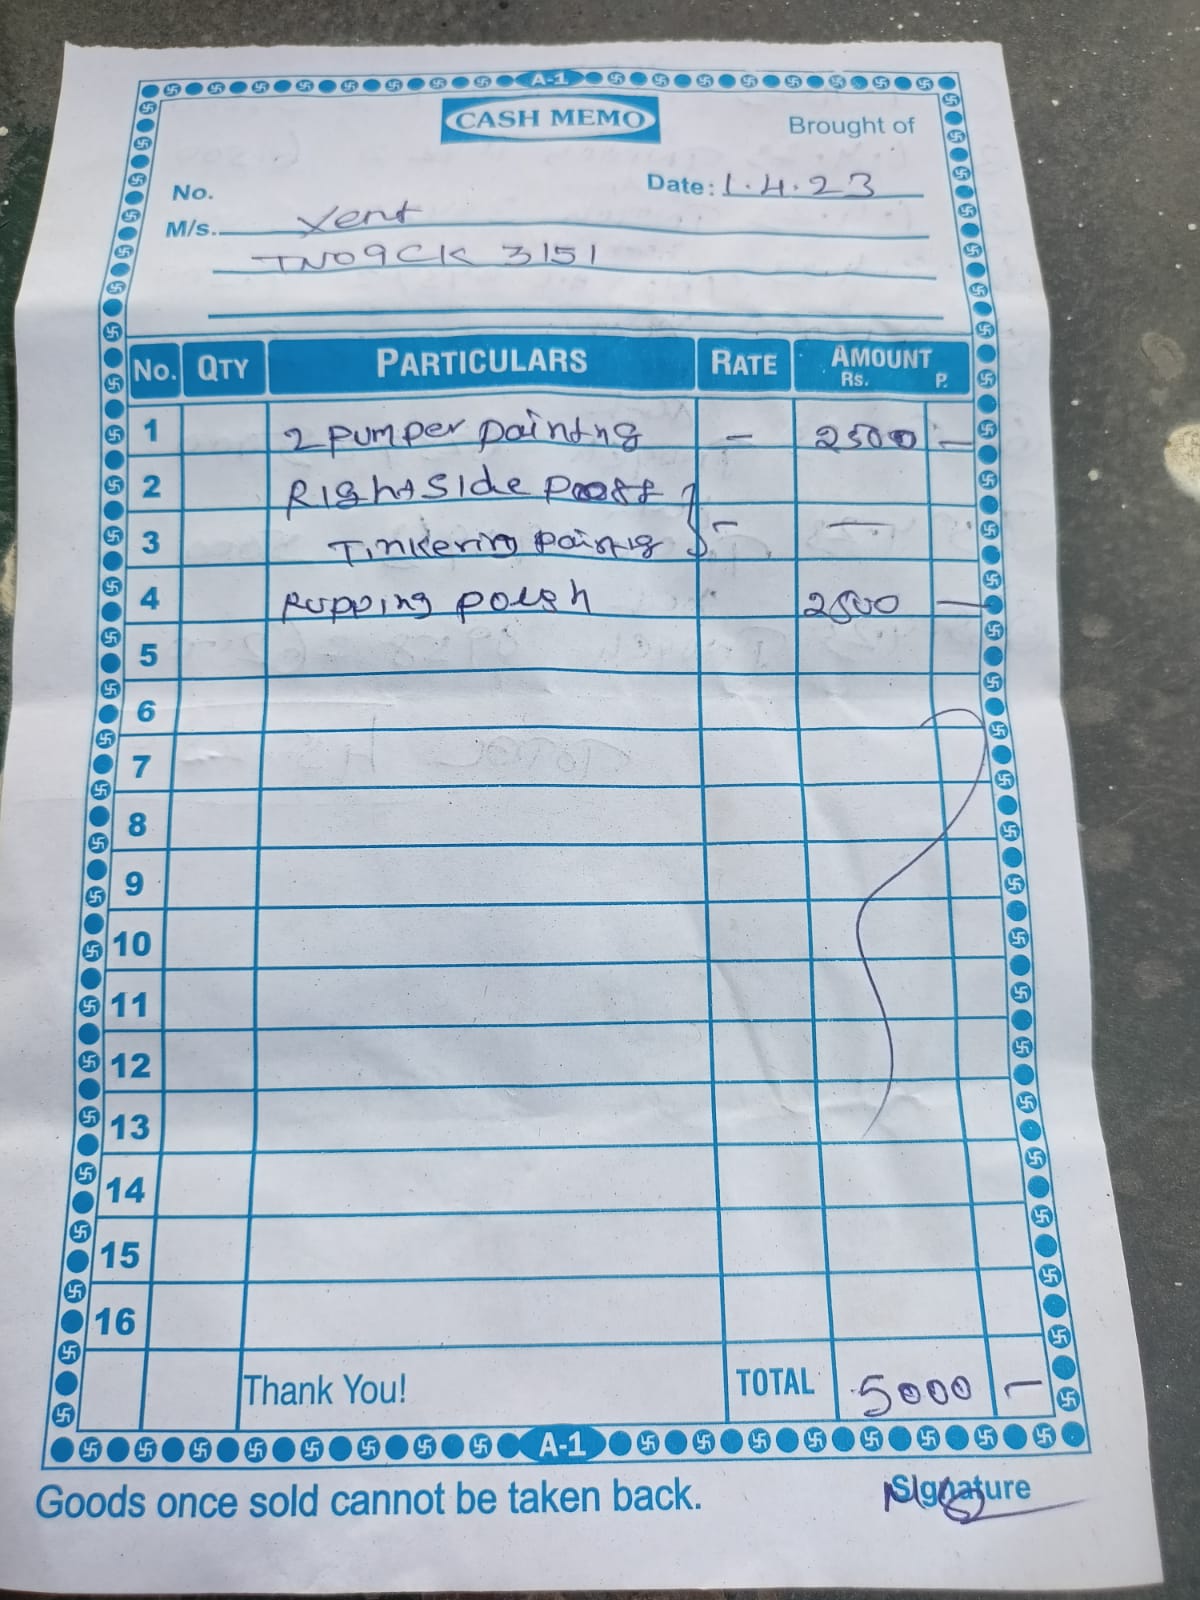 A-1
CASH MEMO
Brought of
No.
Date: 1.4.23
M/s. Vent
TN09CK 3151
No. QTY PARTICULARS RATE AMOUNT
Rs. P.
1 2 Pumper Painting — 2500 —
2 Right Side
3 Tinkering — —
4 Rupping Polish 2500 —
5
6
7
8
9
10
11
12
13
14
15
16
Thank You! TOTAL 5000 —
A-1
Goods once sold cannot be taken back. Signature